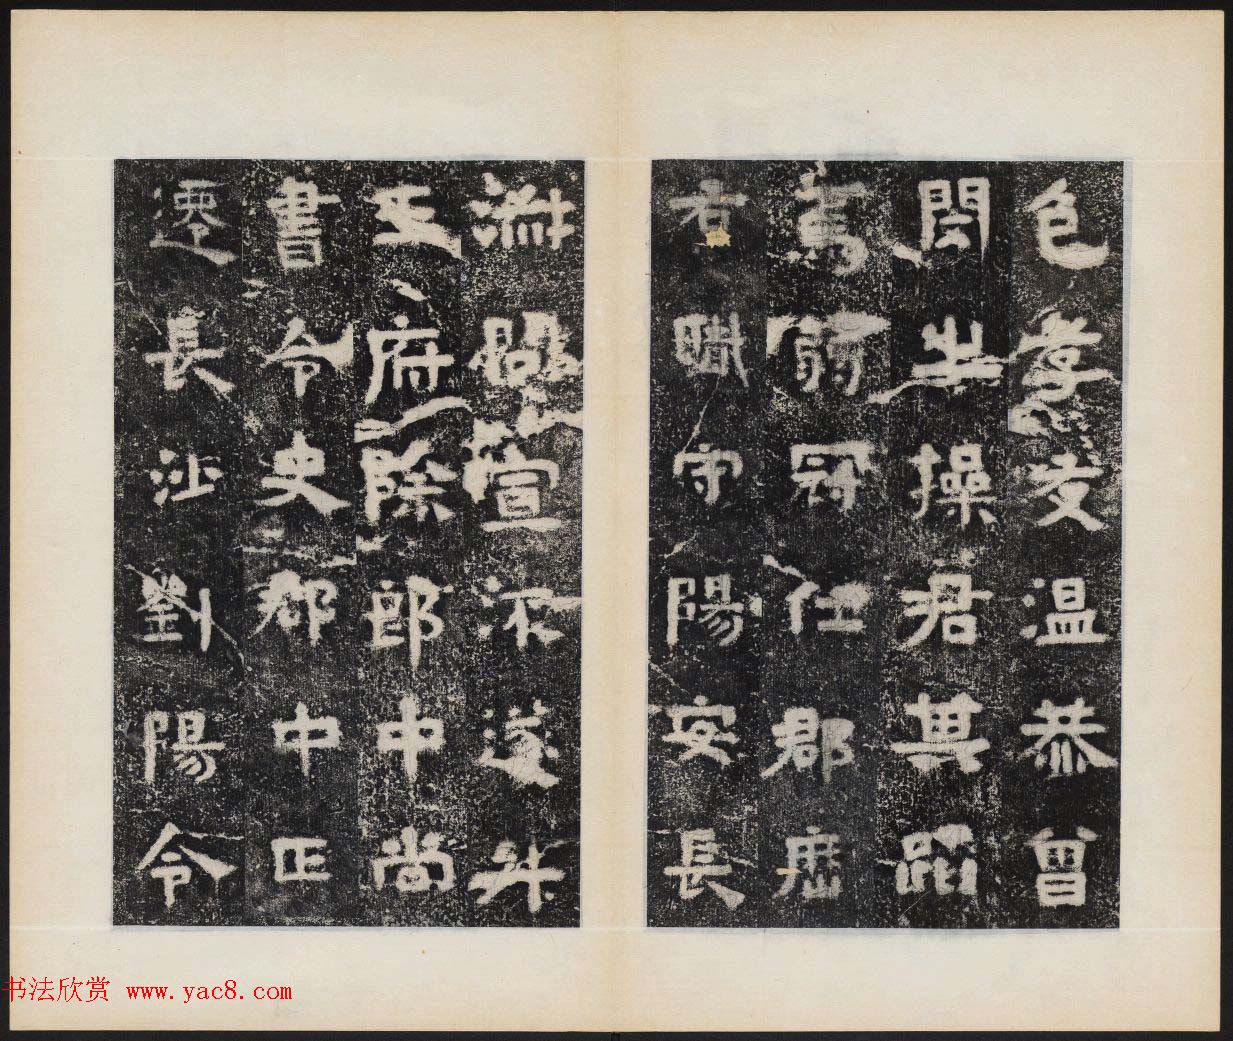 色孝友温恭曾
閔之操君其蹈
焉弱冠仕郡歷
右職守陽安長
宣㳅遂升
王府除郎中尚
書令史郡中正
遷長沙劉陽令
书法欣赏 www.yac8.com